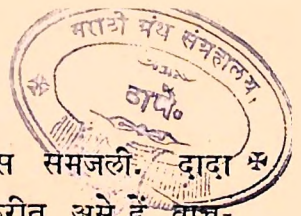 मराठी ग्रंथ संग्रहालय,
ठाणें.
स समजली. दादा
करीत असे हें वाच-